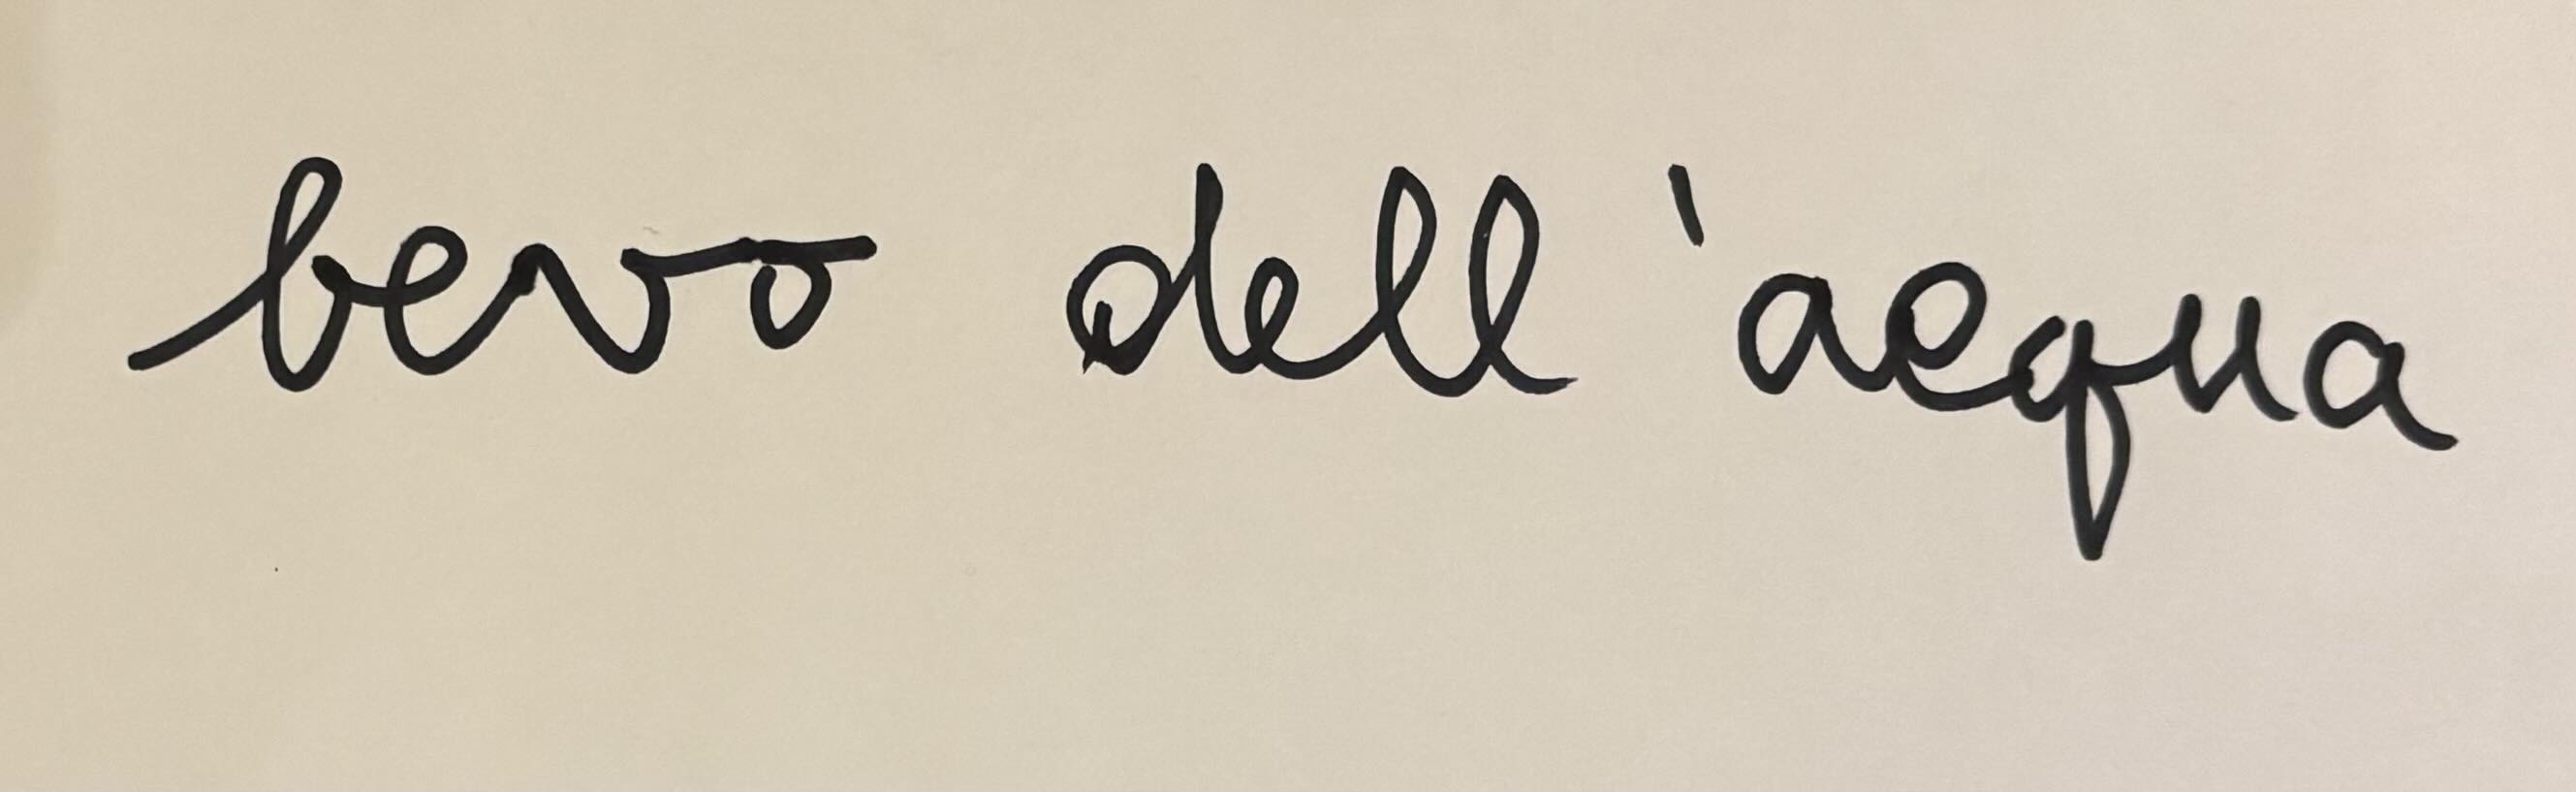 bevo dell'acqua